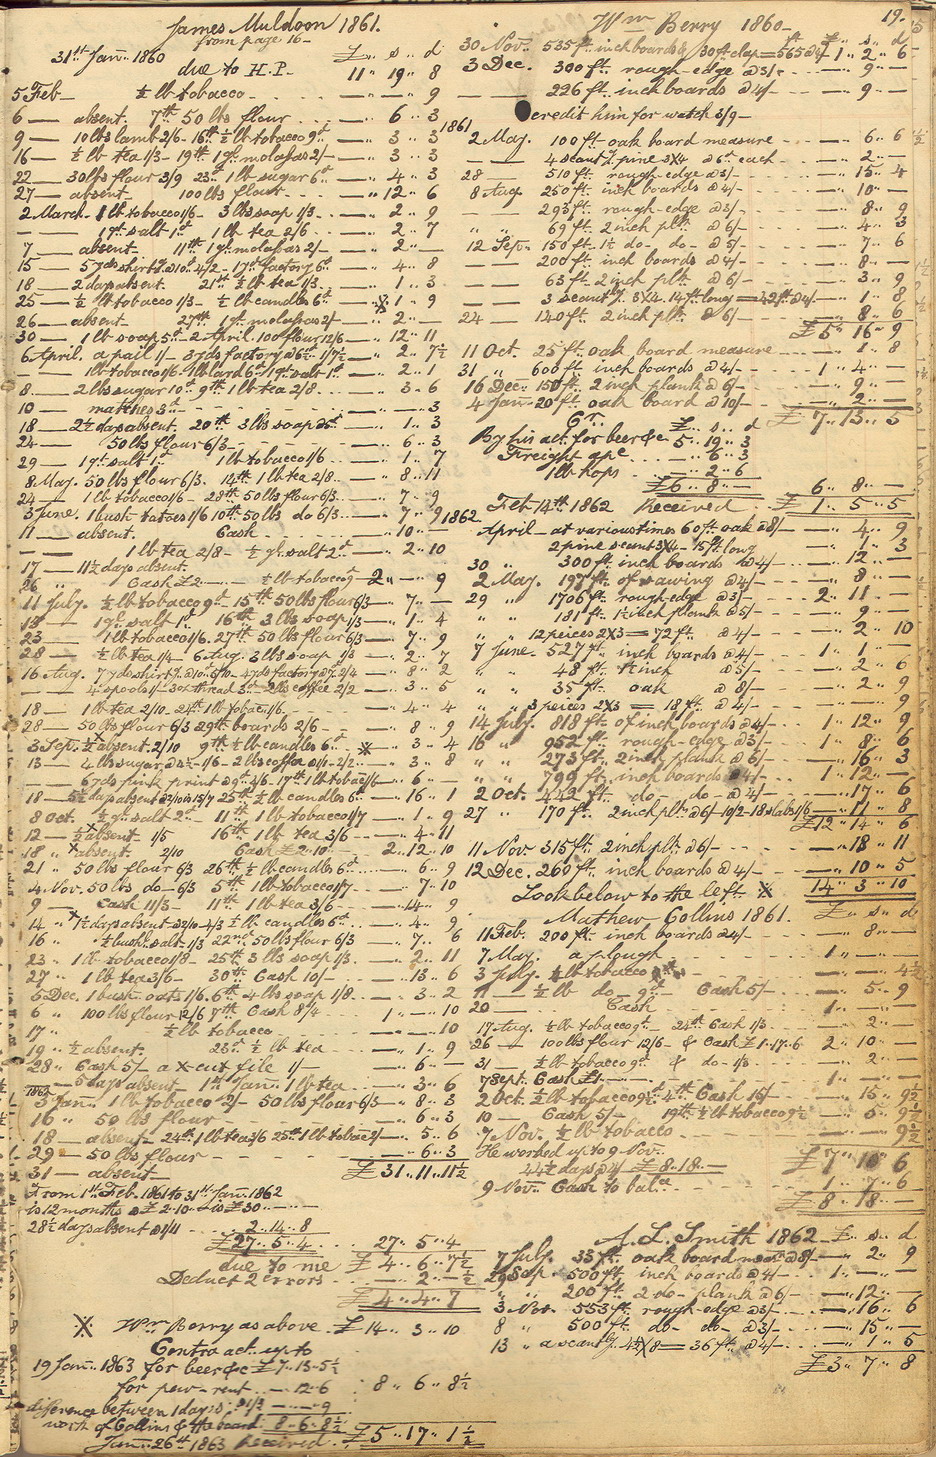 James Muldoon 1861.
from page 16-
31st Jany. 1860 £ „ s „ d
due to H.P. 11 „ 19 „ 8
5 Feb — ½ lb tobacco — „ — „ 9
6 — absent. 7th 50 lbs flour — „ 6 „ 3
9 — 10 lbs lamb 2/6 - 16th ½ lb tobacco 9d — „ 3 „ 3
16 — ½ lb tea 1/3 - 19th 1 gl. molasses 2/- — „ 3 „ 3
22 — 30 lbs flour 3/9 23d 1 lb sugar 6d — „ 4 „ 3
27 — absent 100 lbs flour — „ 12 „ 6
2 March - 1 lb tobacco 1/6 - 3 lbs soap 1/3 — „ 2 „ 9
— 1 qt. salt 1d 1 lb tea 2/6 — „ 2 „ 7
7 — absent. 11th 1 gl. molasses 2/- — „ 2 „ —
15 — 5 yds shirtg. @10d 4/2 - 17th factory 6d — „ 4 „ 8
18 — 2 days absent. 21st ½ lb tea 1/3 — „ 1 „ 3
25 — ½ lb tobacco 1/3 - ½ lb candles 6d — „ 1 „ 9
26 — absent. 27th 1 gl. molasses 2/- — „ 2 „ —
30 — 1 lb soap 5d - 2 April. 100 flour 12/6 — „ 12 „ 11
6 April. a pail 1/- 3 yds factory @6½ - 1/7½ — „ 2 „ 7½
— 1 lb tobacco 1/6 - 1 lb lard 6d 1 qt salt 1d — „ 2 „ 1
8 — 2 lbs sugar 10d 9th 1 lb tea 2/8 — 3 „ 6
10 — matches 3d — „ — „ 3
18 — 2½ days absent. 20th 3 lbs soap @5d — „ 1 „ 3
24 — 50 lbs flour 6/3 — „ 6 „ 3
29 — 1 qt. salt 1d 1 lb tobacco 1/6 — „ 1 „ 7
8 May. 50 lbs flour 6/3. 14th 1 lb tea 2/8 — „ 8 „ 11
24 — 1 lb tobacco 1/6 - 28th 50 lbs flour 6/3 — „ 7 „ 9
3 June. 1 bush. tatoes 1/6 10th 50 lbs do 6/3 — „ 7 „ 9
11 — absent. Cash — „ 10 „ —
— 1 lb tea 2/8 - ½ gl. salt 2d — „ 2 „ 10
17 — 11½ days absent.
26 „ Cash £2 — ½ lb tobacco 9 — 2 „ — „ 9
11 July. ½ lb tobacco 9d 15th 50 lbs flour 6/3 — „ 7 „ —
15 — 1 qt. salt 1d 16th 3 lbs soap 1/3 — „ 1 „ 4
23 1 lb tobacco 1/6. 27th 50 lbs flour 6/3 — „ 7 „ 9
28 — ½ lb tea 1/4 - 6 Aug. 3 lbs soap 1/3 — „ 2 „ 7
16 Aug. 7 yds shirtg. @10d 5/10 - 4 yds factory @7d 2/4 — „ 8 „ 2
— 4 spools 1/- 3 oz thread 3d - 2 lbs coffee 2/2 — „ 3 „ 5
18 — 1 lb tea 2/10. 24th 1 lb tobac. 1/6. — „ 4 „ 4
28 — 50 lbs flour 6/3 29th boards 2/6 — „ 8 „ 9
3 Sep. ½ absent. 2/10 9th ½ lb candles 6d — „ 3 „ 4
13 — 4 lbs sugar - 1/6 - 2 lbs coffee @1/1 - 2/2 — „ 3 „ 8
— 6 yds pink print @9d 4/6 - 17th 1 lb tobac. 1/6 — „ 6 „ —
18 — 5½ days absent @2/10 is 15/7 25th ½ lb candles 6d — „ 16 „ 1
8 Oct. ½ gl. salt 2d - 11th 1 lb tobacco 1/7 — „ 1 „ 9
12 — ½ absent 1/5 16th 1 lb tea 3/6 — „ 4 „ 11
18 „ absent. 2/10 Cash £2 „ 10 „ — 2 „ 12 „ 10
21 „ 50 lbs flour 6/3 26th ½ lb candles 6d — „ 6 „ 9
4 Nov. 50 lbs do — 6/3 5th 1 lb tobacco 1/7 — „ 7 „ 10
9 — Cash 11/3 — 11th 1 lb tea 3/6 — „ 14 „ 9
14 „ 1½ days absent @2/10 - 4/3 ½ lb candles 6d — „ 4 „ 9
16 „ ½ bush. salt 1/3 22nd 50 lbs flour 6/3 — „ 7 „ 6
23 „ 1 lb tobacco 1/8 - 25th 3 lbs soap 1/3. — „ 2 „ 11
27 „ 1 lb tea 3/6 — 30th Cash 10/- — „ 13 „ 6
5 Dec. 1 bush. oats 1/6. 6th 4 lbs soap 1/8. — „ 3 „ 2
6 „ 100 lbs flour 12/6 7th Cash 8/4 1 „ — „ 10
17 „ ½ lb tobacco — „ — „ 10
19 „ ½ absent. 23d ½ lb tea — „ 1 „ 9
28 „ Cash 5/- a X cut file 1/- — „ 6 „ —
— 5 days absent - 1st Jany. 1 lb tea — „ 3 „ 6
1862
3 Jany. 1 lb tobacco 2/- 50 lbs flour 6/3 — „ 8 „ 3
16 „ 50 lbs flour — „ 6 „ 3
18 — absent - 24th 1 lb tea 3/6 25th 1 lb tobac 2/- — „ 5 „ 6
29 — 50 lbs flour — „ 6 „ 3
31 — absent £ 31 „ 11 „ 11½
From 1st Feb. 1861 to 31st Jany. 1862
is 12 months @ £2 „ 10 „ — is £30 „ — „ —
28½ days absent @ 1/11 2 „ 14 „ 8
£27 „ 5 „ 4 27 „ 5 „ 4
due to me £ 4 „ 6 „ 7½
Deduct 2 errors — „ 2 „ —½
£ 4 „ 4 „ 7
※ Wm Berry as above £ 14 „ 3 „ 10
Contra act. up to
19 Jany. 1863 for beer &c £7 „ 13 „ 5½
for pew-rent — „ 12 „ 6 8 „ 6 „ 8½
difference between 1 days — „ — „ 9
work of Collins & the board 8 „ 6 „ 8½
Jany. 26th 1863 Received £5 „ 17 „ 1½
Wm Berry 1860 — 19.
£ „ s „ d
30 Nov. 535 ft. inch boards & 30 ft clap = 565 @4/ 1 „ 2 „ 6
3 Dec. 300 ft. rough-edge @3/- — „ 9 „ —
— 226 ft. inch boards @4/- — „ 9 „ —
credit him for watch 3/9 —
1861
2 May. 100 ft. oak board measure — „ 6 „ 6
— 4 scantlg. pine 3X4 @6d each — „ 2 „ —
28 — 510 ft. rough-edge @3/- — „ 15 „ 4
8 Aug. 250 ft. inch boards @4/- — „ 10 „ —
— 293 ft. rough-edge @3/- — „ 8 „ 9
„ „ 69 ft. 2 inch plk. @6/- — „ 4 „ 3
12 Sep. 150 ft. 1½ do - do - @5/- — „ 7 „ 6
— 200 ft. inch boards @4/- — „ 8 „ —
— 63 ft. 2 inch plk. @6/- — „ 3 „ 9
— 3 scantlg. 3X4. 14 ft long = 42 ft @4/- — „ 1 „ 8
24 — 140 ft. 2 inch plk. @6/- — „ 8 „ 6
£5 „ 16 „ 9
11 Oct. 25 ft. oak board measure — „ 1 „ 8
31 „ 600 ft. inch boards @4/- 1 „ 4 „ —
16 Dec. 150 ft. 2 inch plank @6/- — „ 9 „ —
4 Jany. 20 ft. oak board @10/- — „ 2 „ —
£ 7 „ 13 „ 5
Cr. £ „ s „ d
By his act. for beer &c 5 „ 19 „ 3
Freight — „ 6 „ 3
1 lb hops — „ 2 „ 6
£6 „ 8 „ — 6 „ 8 „ —
Feb 14th 1862 Received £ 1 „ 5 „ 5
1862
April — at various times 60 ft. oak @8/- — „ 4 „ 9
2 pine scant. 3X4 - 15 ft long — „ 1 „ 3
30 „ 300 ft. inch boards @4/- — „ 12 „ —
2 May. 197 ft. of sawing @4/- — „ 8 „ —
29 „ 1706 ft. rough-edge @3/- 2 „ 11 „ —
„ „ 181 ft. 1½ inch plank @5/- — „ 9 „ —
„ „ 12 peices 2X3 = 72 ft. @4/- — „ 2 „ 10
7 June. 527 ft. inch boards @4/- 1 „ 1 „ —
„ „ 48 ft. 1½ inch @5/- — „ 2 „ 6
„ „ 35 ft. oak @8/- — „ 2 „ 9
„ „ 3 peices 2X3 = 18 ft. @4/- — „ — „ 9
14 July. 818 ft. of inch boards @4/- 1 „ 12 „ 9
16 „ 952 ft. rough-edge @3/- 1 „ 8 „ 6
„ „ 273 ft. 2 inch plank @6/- — „ 16 „ 3
„ „ 799 ft. inch boards @4/- 1 „ 12 „ —
2 Oct. 442 ft. do - do - @4/- — „ 17 „ 6
27 „ 170 ft. 2 inch plk. @6/- 10/2 - 18 slabs 1/6 — „ 11 „ 8
£12 „ 14 „ 6
11 Nov 315 ft. 2 inch plk. @6/- — „ 18 „ 11
12 Dec. 260 ft. inch boards @4/- — „ 10 „ 5
Look below to the left ※ 14 „ 3 „ 10
Mathew Collins 1861. £ „ s „ d
11 Feb. 200 ft. inch boards @4/- — „ 8 „ —
7 May. a plough 1 „ — „ —
3 July. ½ lb tobacco — „ — „ 4½
11 — ½ lb do - 9d — Cash 5/- — „ 5 „ 9
20 — Cash 1 „ — „ —
17 Aug. ½ lb tobacco 9d - 24th Cash 1/3 — „ 2 „ —
26 — 100 lbs flour 12/6 & Cash £1 „ 17 „ 6 2 „ 10 „ —
31 ½ lb tobacco 9d & do - 1/3 — „ 2 „ —
7 Sept. Cash £1 1 „ — „ —
2 Oct. ½ lb tobacco 9½ 4th Cash 15/- — „ 15 „ 9½
10 — Cash 5/- 19th ½ lb tobacco 9½ — „ 5 „ 9½
7 Nov. ½ lb tobacco — „ — „ 9½
He worked up to 9 Nov. £ 7 „ 10 „ 6
44½ days @4/- £8 „ 18 „ —
9 Nov. Cash to balce 1 „ 7 „ 6
£ 8 „ 18 „ —
A. L. Smith 1862 £ „ s „ d
7 July. 33 ft. oak board meas. @8/- — „ 2 „ 9
29 Sep. 500 ft. inch boards @4/- 1 „ — „ —
„ „ 200 ft. 2 do - plank @6/- — „ 12 „ —
3 Nov. 553 ft. rough-edge @3/- — „ 16 „ 6
8 „ 500 ft. do - do - @3/- — „ 15 „ —
13 „ a scantlg. 36 ft. @4/- — „ 1 „ 5
£3 „ 7 „ 8